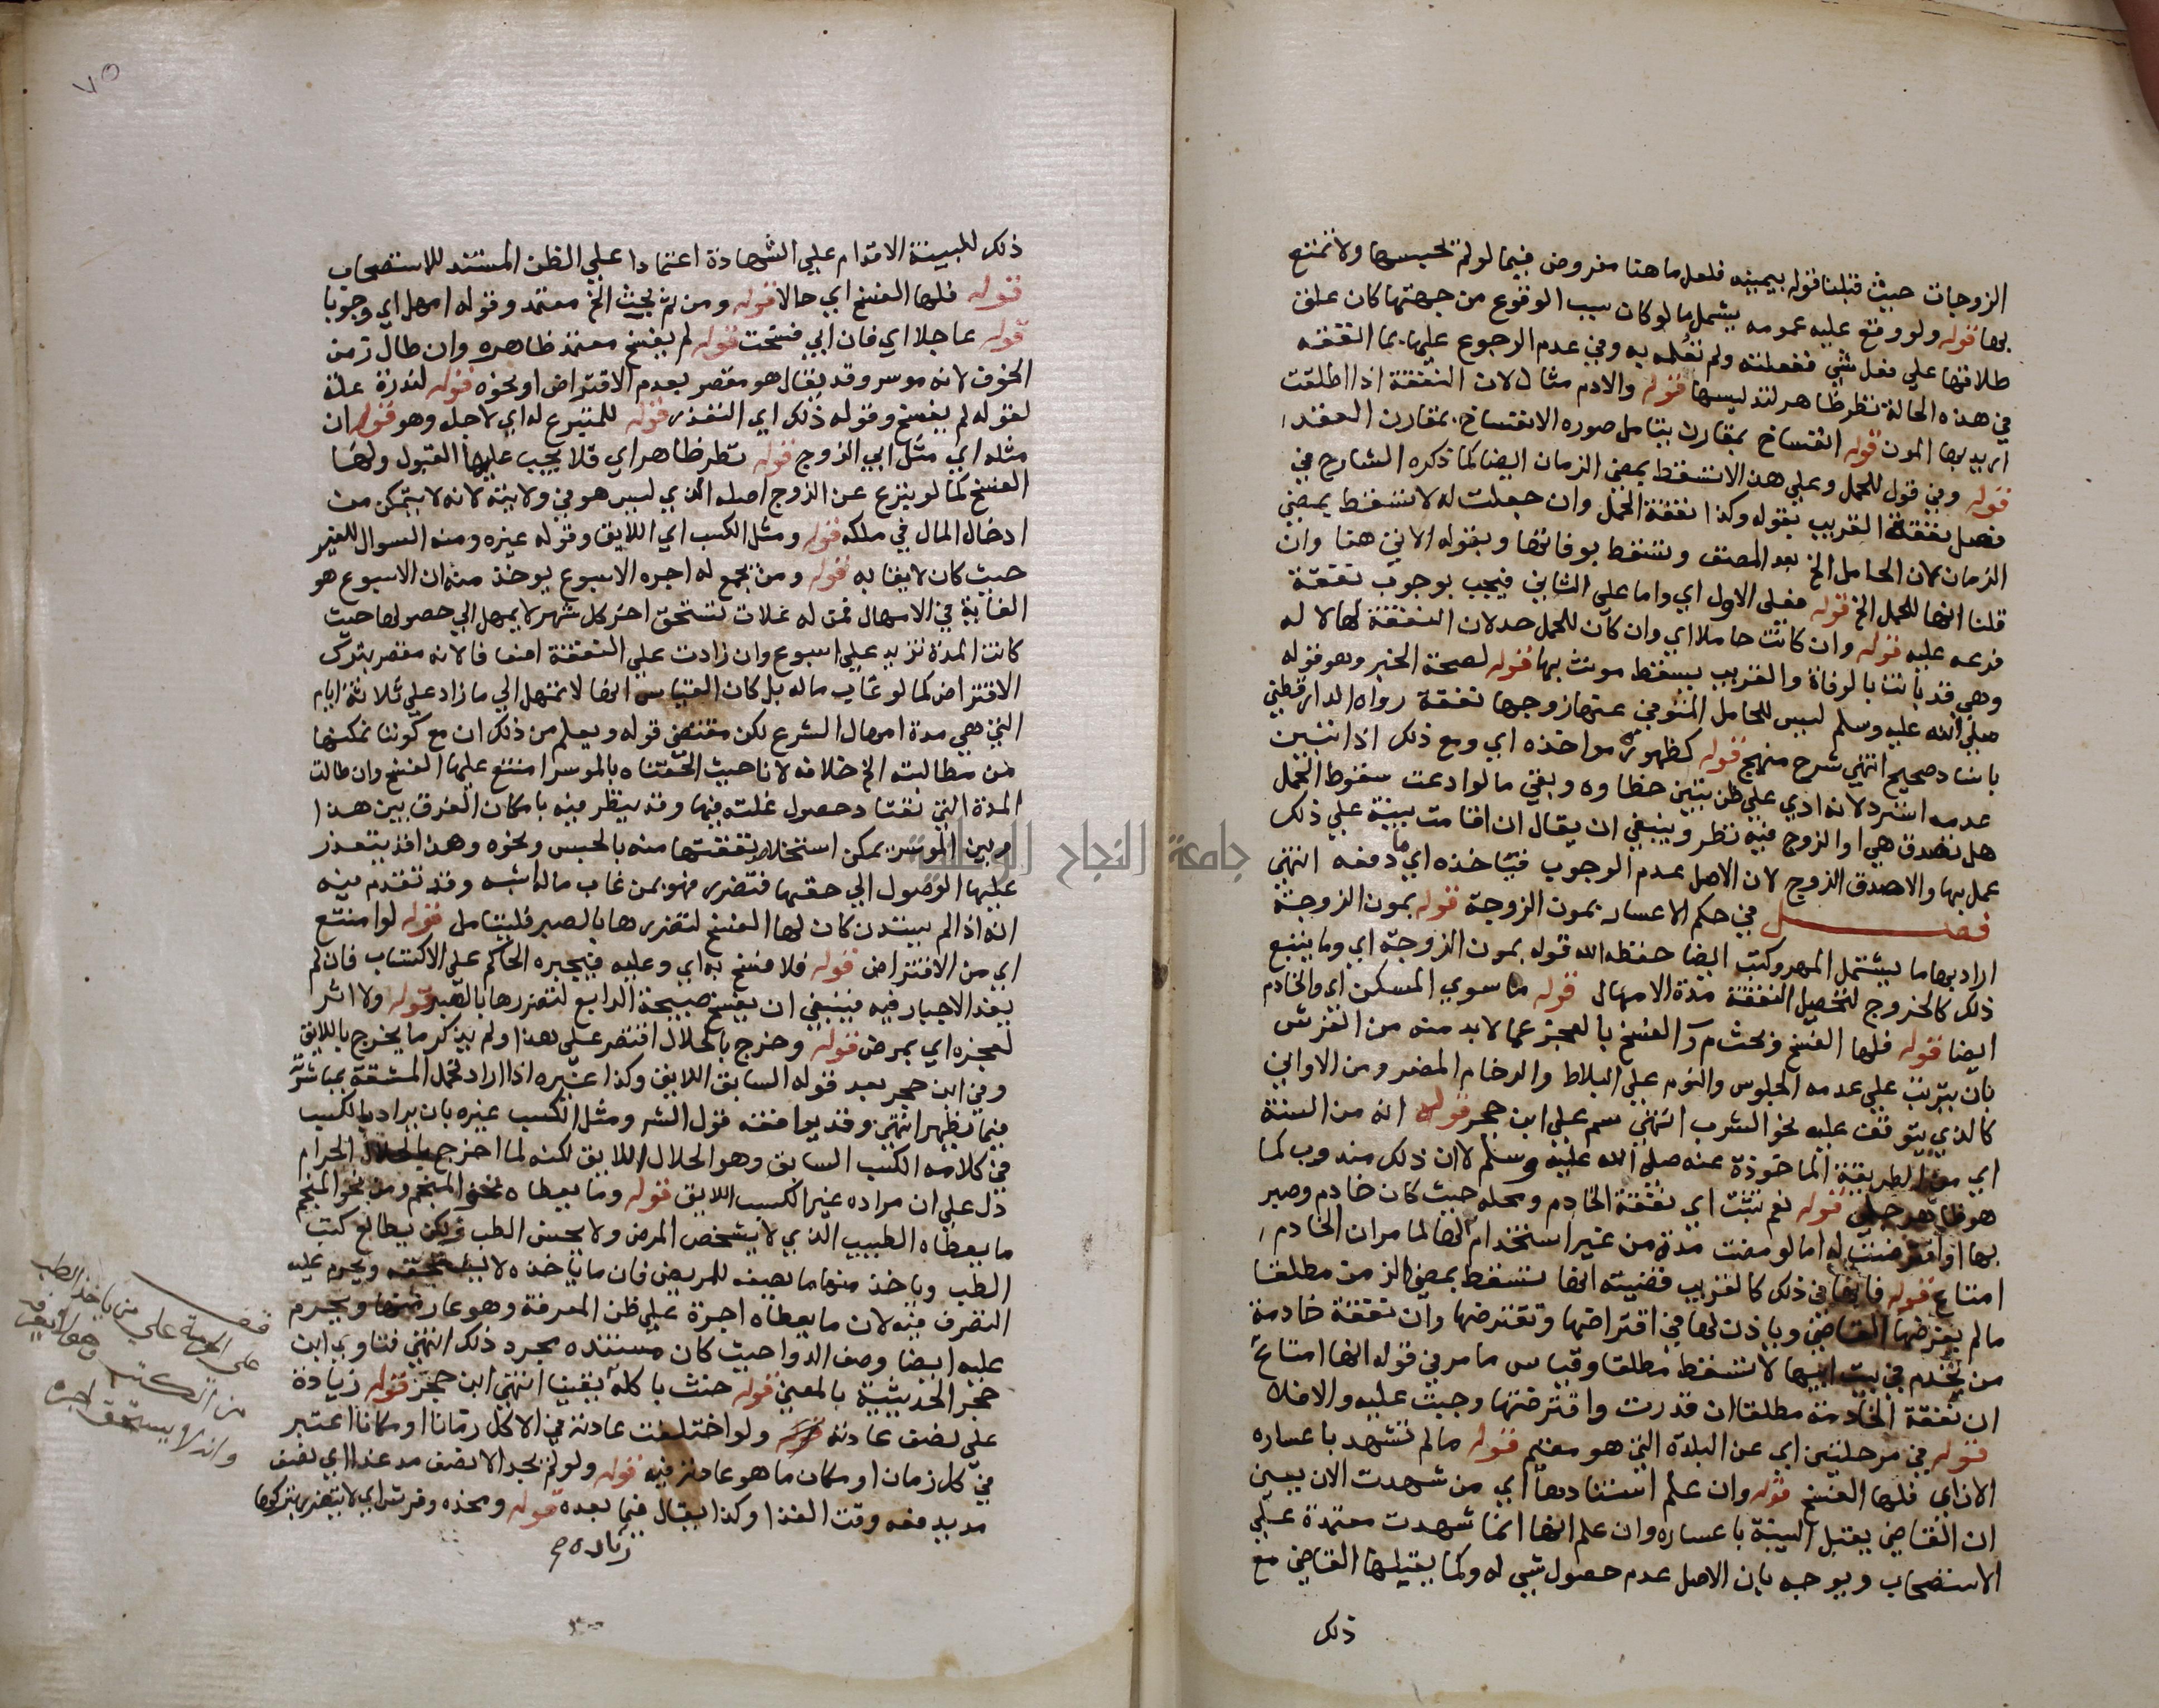 الزوجات حيث قبلنا قوله بيمينه فلعل ما هنا مفروض فيما لو لم يحبسها ولا تمتع
بها قوله ولو وقع عليه عمومه يشمل ما لو كان سبب الوقوع من جهتها كان علق
طلاقها على فعل شي ففعلته ولم تعلمه به وفي عدم الرجوع عليها بما انفقه
في هذه الحالة نظر ظاهر لتدليسها قوله والادم مثال لان النفقة اذا اطلقت
اريد بها المون قوله انفساخ بمقارن يتامل صوره الانفساخ بمقارن العقد
قوله وفي قول للحمل وعلى هذا لا تسقط بمضي الزمان ايضا كما ذكره الشارح في
فصل نفقة القريب بقوله وكذا نفقة الحمل وان جعلت له لا تسقط بمضي
الزمان لان الحامل الخ بعد المصنف وتسقط بوفاتها وبقوله الاتي هنا وان
قلنا انها للحمل الخ قوله فعلى الاول اي واما على الثاني فيجب بوجوب نفقة
فرعه عليه قوله وان كانت حاملا اي وان كان للحمل حد لان النفقة لها لا له
وهي قد بانت بالوفاة والقريب يسقط مونته بها قوله لصحة الخبر وهو قوله
صلى الله عليه وسلم ليس للحامل المتوفى عنها زوجها نفقة رواه الدارقطني
باسناد صحيح انتهى شرح منهج قوله كظهور مواخذه اي ومع ذلك اذا تبين
عدمه استرد لانه ادي على ظن تبين خطاوه وبقي ما لو ادعت سقوط الحمل
هل تصدق هي او الزوج فيه نظر وينبغي ان يقال ان اقامت بينة على ذلك
عمل بها والا صدق الزوج لان الاصل عدم الوجوب فياخذه اي ما دفعه انتهى
فصل في حكم الاعسار بمون الزوجة قوله بمون الزوجة
اراد بها ما يشتمل المهر وكتب ايضا حفظه الله قوله بمون الزوجة اي وما يتبع
ذلك كالخروج لتحصيل النفقة مدة الامهال قوله ما سوي المسكن اي والخادم
ايضا قوله فلها الفسخ وبحث م ر الفسخ بالعجز عما لا بد منه من الفرش
بان يترتب على عدمه الجلوس والنوم على البلاط والرخام المضر ومن الاواني
كالذي يتوقف عليه نحو الشرب انتهى سم على ابن حجر قوله انه من السنة
اي من الطريقة الماخوذة عنه صلى الله عليه وسلم لا ان ذلك مندوب كما
هو ظاهر جلي قوله نعم تثبت اي نفقة الخادم ومحله حيث كان خادم وصبر
بها او اقترضت له اما لو مضت مدة من غير استخدام انها لما مر ان الخادم
امتاع قوله فانها في ذلك كالقريب قضيته انها تسقط بمضي الزمن مطلقا
ما لم يفرضها القاضي وياذن لها في اقتراضها وتقترضها وان نفقة خادمة
من تخدم في بيت ابيها لا تسقط مطلقا وقياس ما مر في قوله انها امتاع
ان نفقة الخادمة مطلقا ان قدرت واقترضتها وجبت عليه والا فلا
قوله في مرحلتين اي عن البلدة التي هو مقيم قوله ما لم تشهد باعساره
الان اي فلها الفسخ قوله وان علم استنادها اي من شهدت الان يعني
ان القاضي يقبل البينة باعساره وان علم انها انما شهدت معتمدة على
الاستصحاب ويوجه بان الاصل عدم حصول شي له وكما يقبلها القاضي مع
ذلك
ذلك للبينة الاقدام على الشهادة اعتمادا على الظن المستند للاستصحاب
قوله فلها الفسخ اي حالا قوله ومن ثم بحث الخ معتمد وقوله امهل اي وجوبا
قوله عاجلا اي فان ابي فسخت قوله لم يفسخ معتمد ظاهره وان طال زمن
الخوف لانه موسر وقد يقال هو مقصر بعدم الاقتراض او نحوه قوله لندرة علة
لقوله لم يفسخ وقوله ذلك اي التعذر قوله للمتبرع له اي لاجله وهو قوله ان
مثله اي مثل ابي الزوج قوله نظر ظاهر اي فلا يجب عليها القبول ولها
الفسخ كما لو تبرع عن الزوج اصله الذي ليس هو في ولايته لانه لا يتمكن من
ادخال المال في ملكه قوله ومثل الكسب اي اللايق وقوله غيره ومنه السوال للغير
حيث كان لايقا به قوله ومن تجمع له اجرة الاسبوع يوخذ منه ان الاسبوع هو
الغاية في الامهال فمن له غلات تستحق اخر كل شهر لا يمهل الى حصولها حيث
كانت المدة تزيد على اسبوع وان زادت على النفقة اضعافا لانه مقصر بترك
الاقتراض كما لو غاب ماله بل كان القياس انها لا تمهل الى ما زاد على ثلاثة ايام
التي هي مدة امهال الشرع لكن مقتضى قوله ويعلم من ذلك ان مع كوننا نمكنها
من مطالبته الخ خلافه لانا حيث الحقناه بالموسر امتنع عليها الفسخ وان طالت
المدة التي تعتاد حصول غلته فيها وقد ينظر فيه بامكان الفرق بين هذا
وبين الموسر يمكن استخلاص نفقتها منه بالحبس ونحوه وهذا قد يتعذر
عليها الوصول الى حقها فتضرر فهو بمن غاب ماله اشبه وقد تقدم فيه
انه اذا لم يستدن كان لها الفسخ لتضررها بالصبر فليتامل قوله لو امتنع
اي من الاقتراض قوله فلا فسخ به اي وعليه فيجبره الحاكم على الاكتساب فان لم
يفد الاجبار فيه فينبغي ان يفسخ صبيحة الرابع لتضررها بالصبر قوله ولا اثر
لعجزه اي بمرض قوله وخرج بالحلال اقتصر على هذا ولم يذكر ما يخرج باللايق
وفي ابن حجر بعد قوله السابق اللايق وكذا غيره اذا اراد تحمل المشقة بمباشرته
فيما يظهر انتهى وقد يوافقه قول الش ومثل الكسب غيره بان يراد بالكسب
في كلامه الكسب السابق وهو الحلال اللايق لكنه لما اخرج بالحلال الحرام
دل على ان مراده غير الكسب اللايق قوله وما يعطاه نحو المنجم ومن نحو المنجم
ما يعطاه الطبيب الذي لا يشخص المرض ولا يحسن الطب ولكن يطالع كتب
الطب وياخذ منها ما يصفه للمريض فان ما ياخذه لا يستحقه ويحرم عليه
التصرف فيه لان ما يعطاه اجرة على ظن المعرفة وهو عار منها ويحرم
عليه ايضا وصف الدوا حيث كان مستنده مجرد ذلك انتهى فتاوي ابن
حجر الحديثية بالمعنى قوله حنث باكله يقينا انتهى ابن حجر قوله زيادة
على نصف عادته ولو اختلفت عادته في الاكل زمانا او مكانا اعتبر
في كل زمان او مكان ما هو عادته فيه قوله ولو لم يجد الا نصف مد غدا اي نصف
مد يدفعه وقت الغدا وكذا يقال فيما بعده قوله ومخده وفرش اي لا يتضرر بتركها
زياده م
على الحرمة على من ياخذ الطب
من الكتب
وانه لا يستحق اجرة
٧٥
جامعة النجاح الوطنية